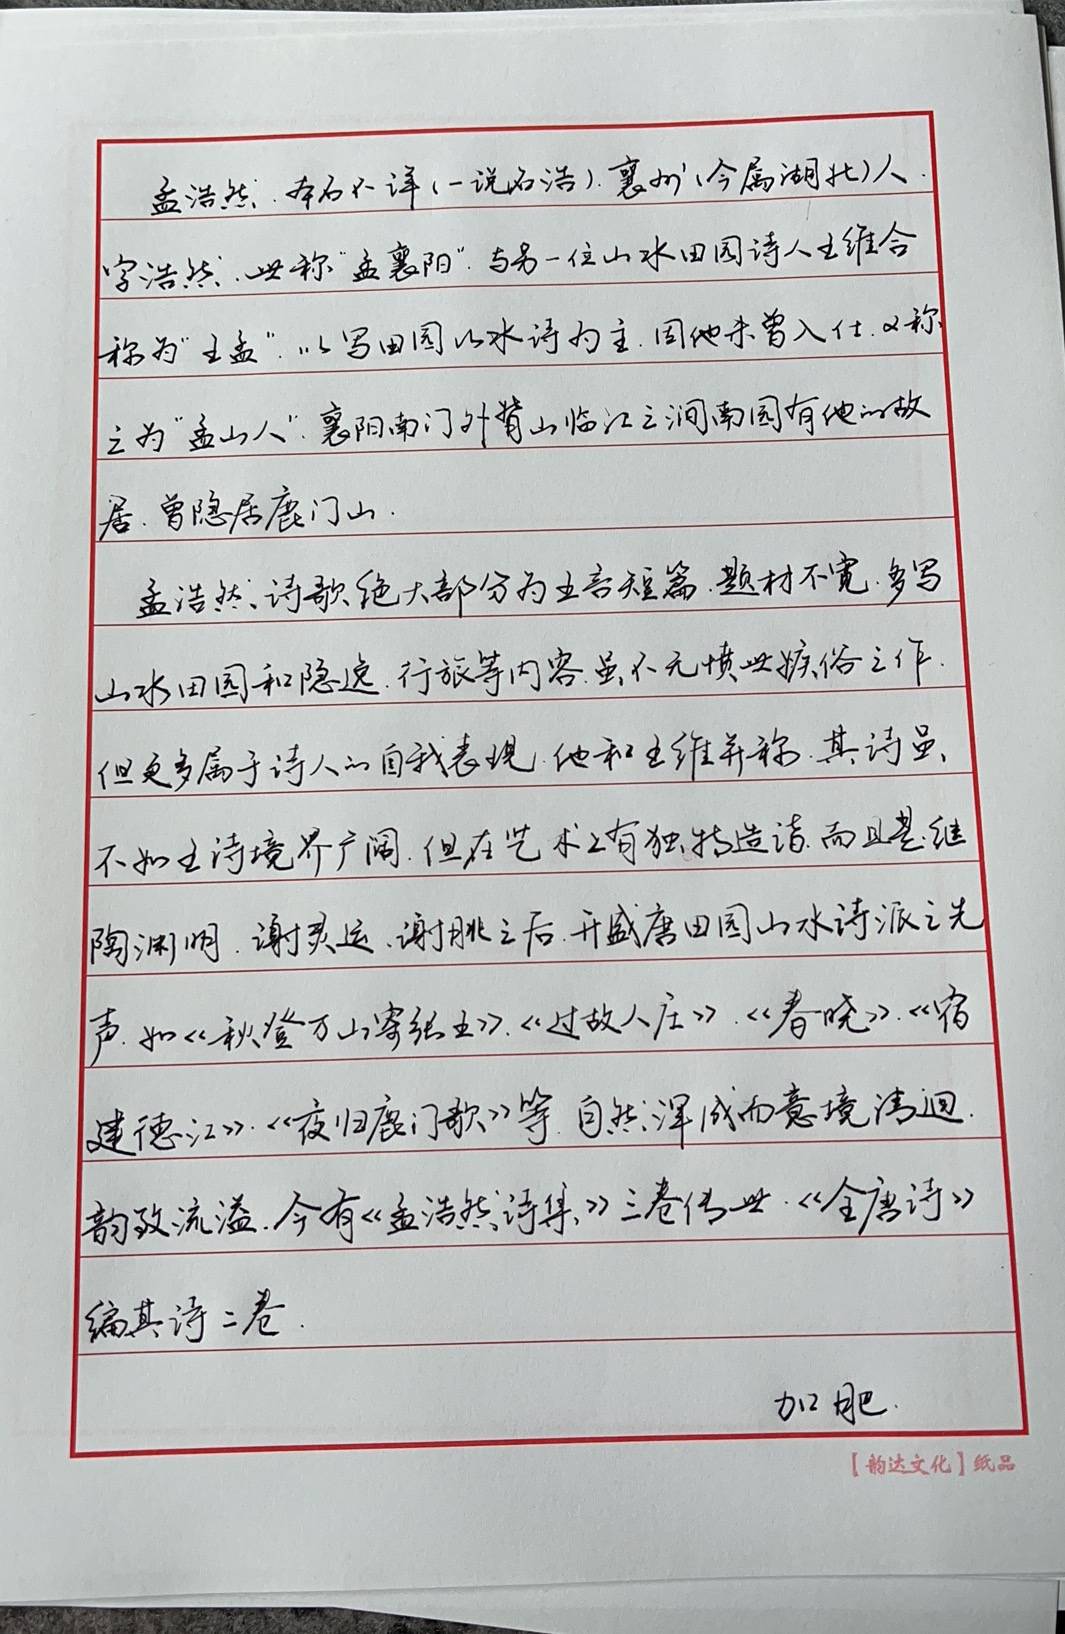 孟浩然.本名不详(一说名浩).襄州(今属湖北)人.
字浩然.世称"孟襄阳".与另一位山水田园诗人王维合
称为"王孟".以写田园山水诗为主.因他未曾入仕.又称
之为"孟山人".襄阳南门外背山临江之涧南园有他的故
居.曾隐居鹿门山.
孟浩然诗歌绝大部分为五言短篇.题材不宽.多写
山水田园和隐逸.行旅等内容.虽不无愤世嫉俗之作.
但更多属于诗人的自我表现.他和王维并称.其诗虽
不如王诗境界广阔.但在艺术上有独特造诣.而且是继
陶渊明.谢灵运.谢朓之后.开盛唐田园山水诗派之先
声.如《秋登万山寄张五》.《过故人庄》.《春晓》.《宿
建德江》.《夜归鹿门歌》等.自然浑成而意境清迥.
韵致流溢.今有《孟浩然诗集》三卷传世.《全唐诗》
编其诗二卷.
加肥.
【韵达文化】纸品